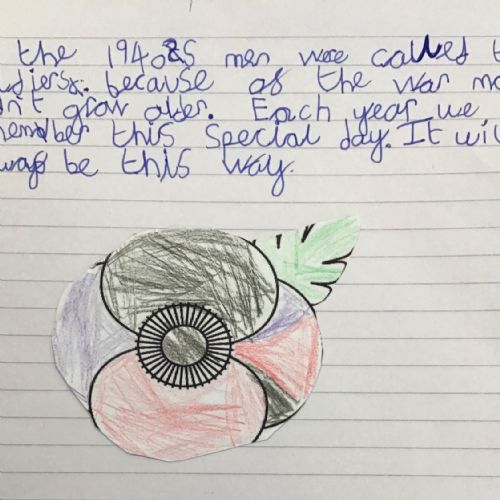 the 1940s men were called t
diers. because of the war mo
dn't grow older. Each year we
member this special day. It wil
ways be this way.